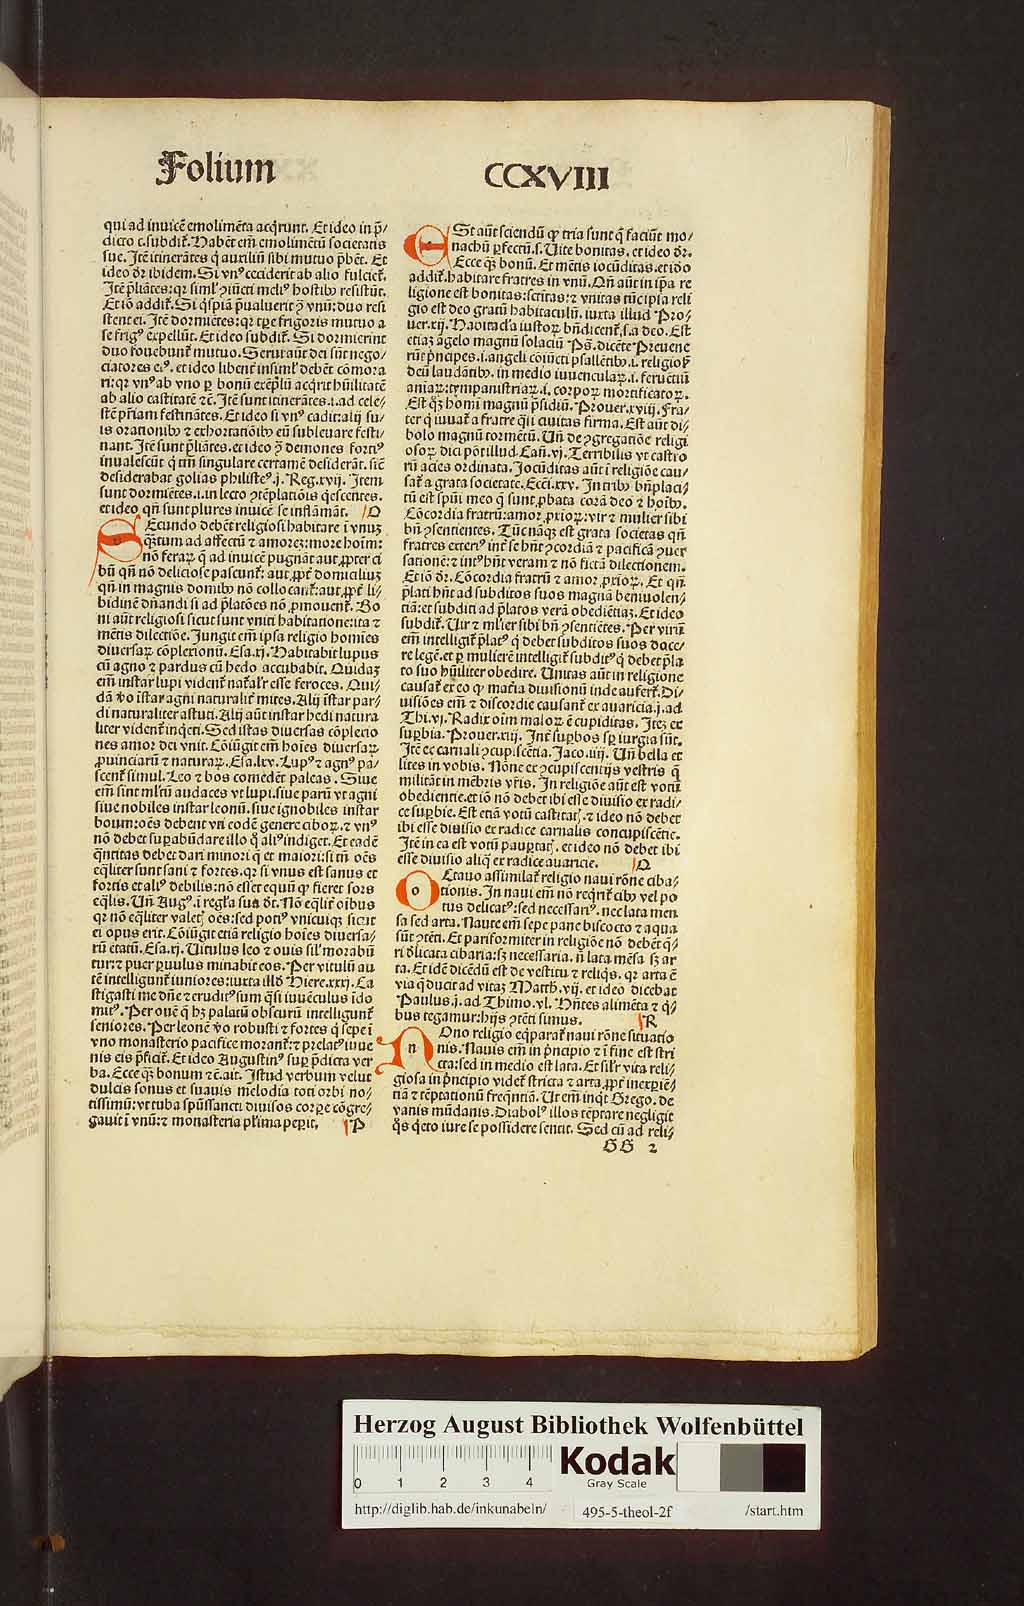 Folium CCXVIII
qui ad inuicē emolimēta acq̄runt. Et ideo in p̄⸗
dicto c. subdit᷑. Habēt em̄ emolimētū societatis
sue. Itē itinerātes q̇ auxiliū sibi mutuo p̄bēt. Et
ideo dr̄ ibidem. Si vnꝰ ecciderit ab alio fulciet᷑.
Itē p̄liātes: qr siml᷑ ꝯiūcti meliꝰ hostibꝰ resistūt.
Et iō addit᷑. Si q̇spiā p̄ualuerit ꝯ̄ vnū: duo resi
stent ei. Itē dormiētes: qr tp̄e frigoris mutuo a
se frigꝰ expellūt. Et ideo subdit᷑. Si dormierint
duo fouebunt᷑ mutuo. Serui aūt dei sūt nego⸗
ciatores eiꝰ. et ideo libent᷑ insiml᷑ debēt cōmora
ri: qr vnꝰ ab vno ꝑ bonū exēplū acq̄rit hūilitatē
ab alio castitatē ⁊c̄. Itē sunt itinerātes. i. ad cele⸗
stē pr̄iam festinātes. Et ideo si vnꝰ cadit: alij su⸗
is orationibꝰ ⁊ exhortatiōibꝰ eū subleuare festi⸗
nant. Itē sunt p̄liātes. et ideo ꝯ̄ demones fortiꝰ
inualescūt q̄ tm̄ singulare certamē desiderāt. sicē
desiderabat golias philisteꝰ. j. Reg. xvij. Item
sunt dormiētes. i. in lecto ꝯtēplatiōis q̇escentes.
et ideo qn̄ sunt plures inuicē se inflāmāt. O
SEcundo debēt religiosi habitare ī vnuꝫ
q̄tum ad affectū ⁊ amoreꝫ: more hoīm:
nō feraꝝ q̄ ad inuicē pugnāt aut ꝓpter ci
bū qn̄ nō deliciose pascunt᷑: aut ꝓpt᷑ domiciliuꝫ
qn̄ in magnis domibꝰ nō collocant᷑: aut ꝓpt᷑ li⸗
bidinē dn̄andi si ad p̄latōes nō ꝓmouent᷑. Bo
ni aūt religiosi sicut sunt vniti habitatione: ita ⁊
mētis dilectiōe. Jungit em̄ ipsa religio homīes
diuersaꝝ cōplexionū. Esa. xj. Habitabit lupus
cū agno ⁊ pardus cū hedo accubabit. Quidaꝫ
em̄ instar lupi vident᷑ nat᷑al᷑r esse feroces. Qui⸗
dā ꝟo īstar agni naturalit᷑ mites. Alij īstar par⸗
di naturaliter astuti. Alij aūt instar hedi natura
liter vident᷑ inq̇eti. Sed istas diuersas cōplexio
nes amor dei vnit. Cōiūgit em̄ hoīes diuersaꝝ
ꝓuinciarū ⁊ naturaꝝ. Esa. lxv. Lupꝰ ⁊ agnꝰ pa⸗
scent᷑ simul. Leo ⁊ bos comedēt paleas. Siue
em̄ sint ml᷑tū audaces vt lupi. siue parū vt agni
siue nobiles instar leonū. siue ignobiles instar
boum: oēs debent vti eodē genere ciboꝝ. ⁊ vnꝰ
nō debet suꝑabūdare illo q̄ aliꝰ indiget. Et eadē
q̄ntitas debet dari minori q̄ et maiori: si tn̄ oēs
eq̄liter sunt sani ⁊ fortes. qr si vnus est sanus et
fortis et aliꝰ debilis: nō esset equū ꝙ fieret sors
eq̄lis. Uñ Augꝰ. ī regl᷑a sua dt̄. Nō eq̄lit᷑ oībus
qr nō eq̄liter valetꝭ oēs: sed potiꝰ vnicuiqꝫ sicut
ei opus erit. Cōiūgit etiā religio hoīes diuersa⸗
rū etatū. Esa. xj. Uitulus leo ⁊ ouis sil᷑ morabū
tur: ⁊ puer ꝑuulus minabit eos. Per vitulū au
tē intelligunt᷑ iuniores: iuxta illd̄ Hiere. xxxj. Ca
stigasti me dn̄e ⁊ eruditꝰ sum q̄si iuuēculus īdo
mitꝰ. Per ouē q̄ hꝫ palatū obscurū intelligunt᷑
seniores. Per leonē ꝟo robusti ⁊ fortes q̇ sepe ī
vno monasterio pacifice morant᷑: ⁊ prelatꝰ iuue
nis eis p̄ficit᷑. Et ideo Augustinꝰ suꝑ p̄dicta ver
ba. Ecce qꝫ bonum ⁊c̄. ait. Istud verbum velut
dulcis sonus et suauis melodia toti orbi no⸗
tissimū: vt tuba spūssancti diuisos corpe cōgre⸗
gauit ī vnū: ⁊ monasteria pl᷑ima peperit. P
ESt aūt sciendū ꝙ tria sunt q̄ faciūt mo⸗
nachū ꝑfectū. s. Uite bonitas. et ideo dr̄.
Ecce qꝫ bonū. Et mētis iocūditas. et iō
addit᷑. habitare fratres in vnū. Qn̄ aūt in ip̄a re
ligione est bonitas: sctitas: ⁊ vnitas tūc ipsa reli
gio est deo gratū habitaculū. iuxta illud Pro⸗
uer. xij. Habitacl᷑a iustoꝝ bn̄dicent᷑. s. a deo. Est
etiaꝫ āgelo magnū solaciū Ps̄. dicēte Preuene
rūt p̄ncipes. i. angeli coiūcti psallētibꝰ. i. religiosꝭ
deū laudātibꝰ. in medio iuuenculaꝝ. i. feruētiū
aniaꝝ: tympanistriaꝝ. i. corpoꝝ mortificatoꝝ.
Est qꝫ homī magnū p̄sidiū. Prouer. xviij. Fra⸗
ter q̇ iuuat᷑ a fratre q̄si ciuitas firma. Est aūt di⸗
bolo magnū tormētū. Uñ de ꝯgregatiōe religi
osoꝝ dici pōt illud. Cañ. vj. Terribilis vt castro
rū acies ordinata. Jocūditas aūt ī religiōe cau⸗
sat᷑ a grata societate. Ecci. xxv. In tribꝰ bn̄placi⸗
tū est spūi meo q̄ sunt ꝓbata corā deo ⁊ hoībꝰ.
Cōcordia fratrū: amor ꝓxioꝝ: vir ⁊ mulier sibi
bn̄ ꝯsentientes. Tūc nāqꝫ est grata societas qn̄
fratres exteriꝰ int᷑ se hn̄t ꝯcordiā ⁊ pacificā ꝯuer
sationē: ⁊ intꝰ hn̄t veram ⁊ nō fictā dilectionem.
Et iō dr̄. Cōcordia fratrū ⁊ amor ꝓxioꝝ. Et qn̄
p̄lati hn̄t ad subditos suos magnā beniuolen⸗
tiā: et subditi ad p̄latos verā obediētiaꝫ. Et ideo
subdit᷑. Uir ⁊ ml᷑ier sibi bn̄ ꝯsentiētes. Per virū
em̄ intelligit᷑ p̄latꝰ q̇ debet subditos suos doce⸗
re legē. et ꝑ mulierē intelligit᷑ subditꝰ q̇ debet p̄la
to suo hūiliter obedire. Unitas aūt in religione
causat᷑ ex eo ꝙ mat᷑ia diuisionū inde aufert᷑. Di⸗
uisiōes em̄ ⁊ discordie causant᷑ ex auaricia. j. ad
Thi. vj. Radix oīm maloꝝ ē cupiditas. Iteꝫ ex
suꝑbia. Prouer. xiij. Int᷑ suꝑbos sꝑ iurgia sūt.
Itē ex carnali ꝯcupiscētia. Jaco. iiij. Uñ bella et
lites in vobis. Nōne ex ꝯcupiscentijs vestris q̄
militāt in mēbris vr̄is. In religiōe aūt est votū
obedientie. et iō nō debet ibi esse diuisio ex radi⸗
ce suꝑbie. Est etiā votū castitatꝭ. ⁊ ideo nō debet
ibi esse diuisio ex radice carnalis concupiscētie.
Itē in ea est votū pauꝑtatꝭ. et ideo nō debet ibi
esse diuisio aliq̄ ex radice auaricie. Q
OCtauo assimilat᷑ religio naui rōne ciba⸗
tionis. In naui em̄ nō req̇rit᷑ cibꝰ vel po
tus delicatꝰ: sed necessariꝰ. nec lata men
sa sed arta. Naute em̄ sepe pane biscocto ⁊ aqua
sūt ꝯtēti. Et pariformiter in religiōe nō debēt q̄⸗
ri delicata cibaria: sꝫ necessaria. n̄ lata mēsa sꝫ ar
ta. Et idē dicēdū est de vestitu ⁊ reliq̇s. qr arta ē
via q̄ ducit ad vitaꝫ Matth. vij. et ideo dicebat
Paulus. j. ad Thimo. vl. Hn̄tes alimēta ⁊ q̇⸗
bus tegamur: hijs ꝯtēti simus. R
NOno religio eq̇parat᷑ naui rōne situatio
nis. Nauis em̄ in p̄ncipio ⁊ ī fine est stri
cta: sed in medio est lata. Et sil᷑r vita reli⸗
giosa in p̄ncipio videt᷑ stricta ⁊ arta. ꝓpt᷑ inexꝑiē⸗
tiā ⁊ tēptationū freq̄ntiā. Ut em̄ inq̇t Grego. de
vanis mūdanis. Diabolꝰ illos tēptare negligit
q̇s q̇eto iure se possidere sentit. Sed cū ad reli⸗
GG 2
Herzog August Bibliothek Wolfenbüttel
0 1 2 3 4
Kodak
Gray Scale
http://diglib.hab.de/inkunabeln/ 495-5-theol-2f /start.htm